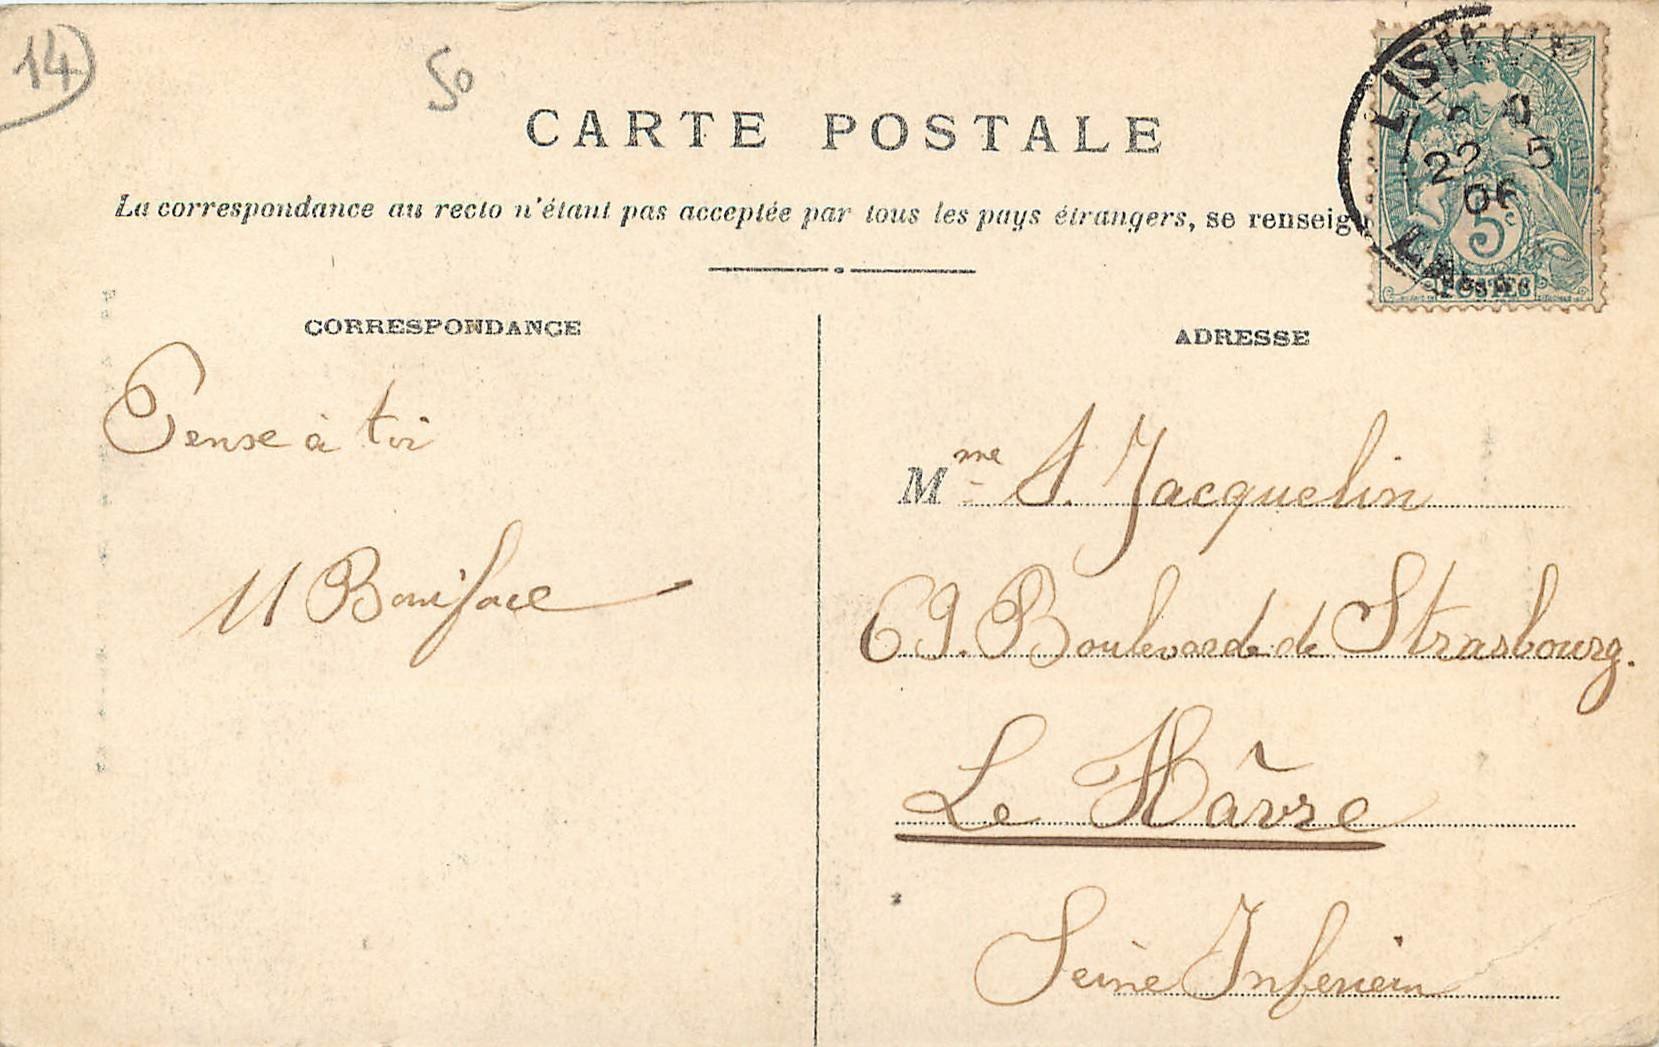 14
50
CARTE POSTALE
La correspondance au recto n'étant pas acceptée par tous les pays étrangers, se renseig
LISIEUX
22 5
06
5c
POSTES
CORRESPONDANCE
Pense à toi
M Boniface
ADRESSE
Mme S. Jacquelin
69. Boulevard de Strasbourg.
Le Hâvre
Seine Inferieure